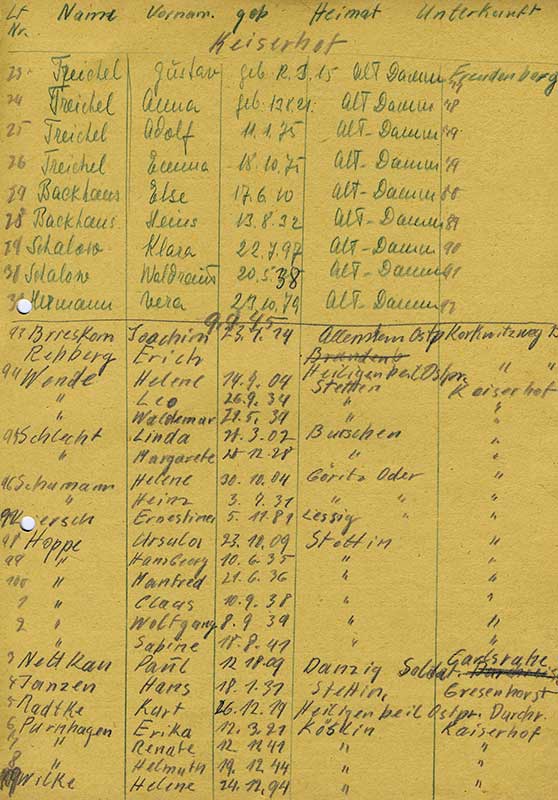 Lf Name Vornam. geb Heimat Unterkunft
Nr.
Keiserhof
23 Treichel Gustav geb. 12.3.15 Alt Damm Freudenberg
24 Treichel Anna geb. 12.X.21. Alt-Damm 88
25 Treichel Adolf 11.1.75 Alt-Damm 89
26 Treichel Emma 18.10.75 Alt-Damm
29 Backhaus Else 17.6.10 Alt-Damm
28 Backhaus Heins 13.8.32 Alt-Damm 89
29 Schalow Klara 22.7.97 Alt-Damm 90
30 Schalow Waldraut 20.5.38 Alt-Damm 91
Hermann Vera 23.10.79 Alt-Damm
9.9.45
93 Brieskorn Joachim 23.1.14 Allenstein Ostp Korkwitzweg
Rehberg Erich Brandenb
Heiligenbeil Ostpr. " "
94 Wende Helene 14.9.04 Stettin Kaiserhof
" Leo 26.9.34 " "
" Waldemar 21.5.39 " "
95 Schlecht Linda 11.3.02 Burschen "
" Margarete 12.28 "
96 Schumann Helene 30.10.04 Göritz Oder "
" Heinz 3.7.31 " " "
Ernestine 5.11.81 Lessig "
98 Hoppe Ursula 23.10.09 Stettin "
99 " Hansgeorg 10.6.35 " "
100 " Manfred 21.6.36 " "
1 " Claas 10.9.38 " "
2 " Wolfgang 8.9.39 " "
" Sabine 18.8.41 "
3 Nettkau Paul 12.18.09 Danzig Soldat Carlsruhe
4 Janzen Hans 18.1.31 Stettin Gresenhorst
5 Radtke Kurt 26.12.14 Heiligenbeil Ostpr. Durchr.
6 Purnhagen Erika 12.3.21 Köslin Kaiserhof
7 " Renate 12.11.41 " "
8 " Helmuth 19.12.44 " "
109 Wilke Helene 24.12.94 " "